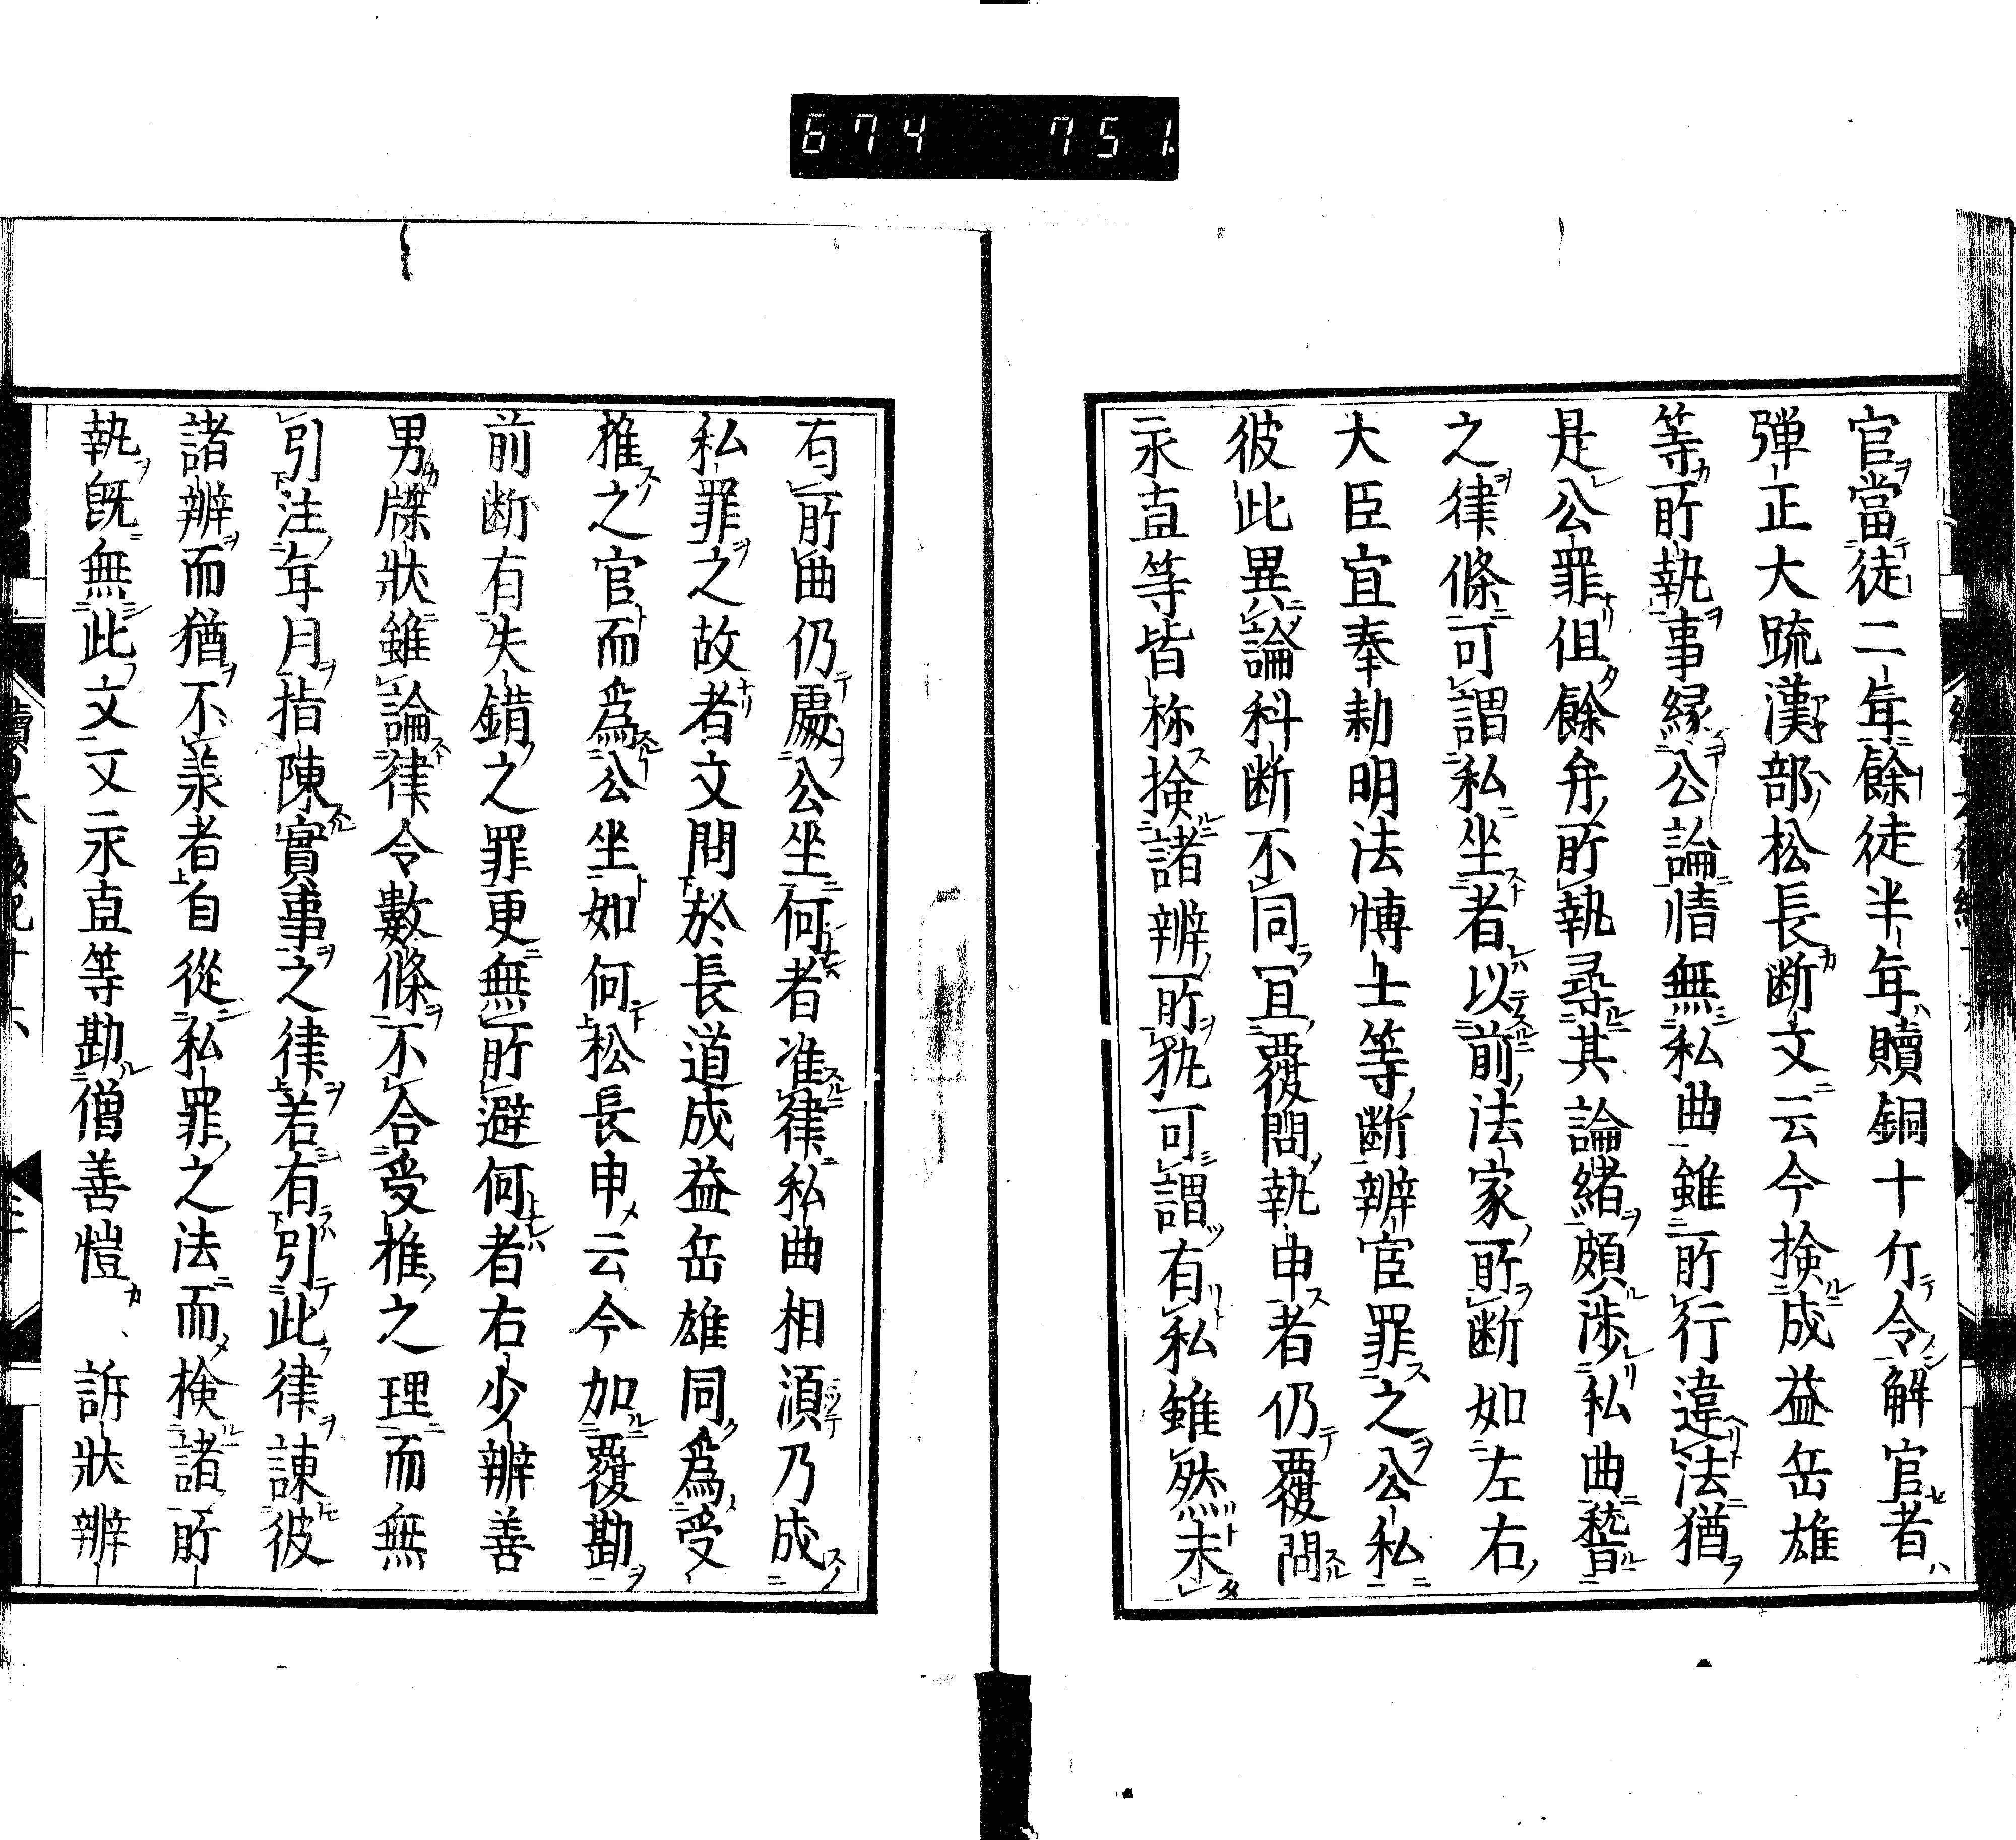 674 751
官當徒二年餘徒半年贖銅十斤令解官者
弾正大䟽漢部松長断文云今撿成益岳雄
等所執事縁公論情無私曲雖所行違法猶
是公罪但餘弁所執尋其論緒頗渉私曲稽
之律條可謂私坐者以前法家所断如左右
大臣宣奉勅明法博士等断辨官罪之公私
彼此異論科断不同冝覆問執申者仍覆問
永直等皆称撿諸辨所執可謂有私雖然未
有所曲仍處公坐何者准律私曲相須乃成
私罪之故者文問於長道成益岳雄同為受
推之官而為公坐如何松長申云今加覆勘
前断有失錯之罪更無所避何者右少辨善
男牒狀雖論律令數條不合受推之理而無
引注年月指陳實事之律若有引此律諫彼
諸辨而猶不羕者自從私罪之法而検諸所
執旣無此文又永直等勘僧善愷訴狀辨